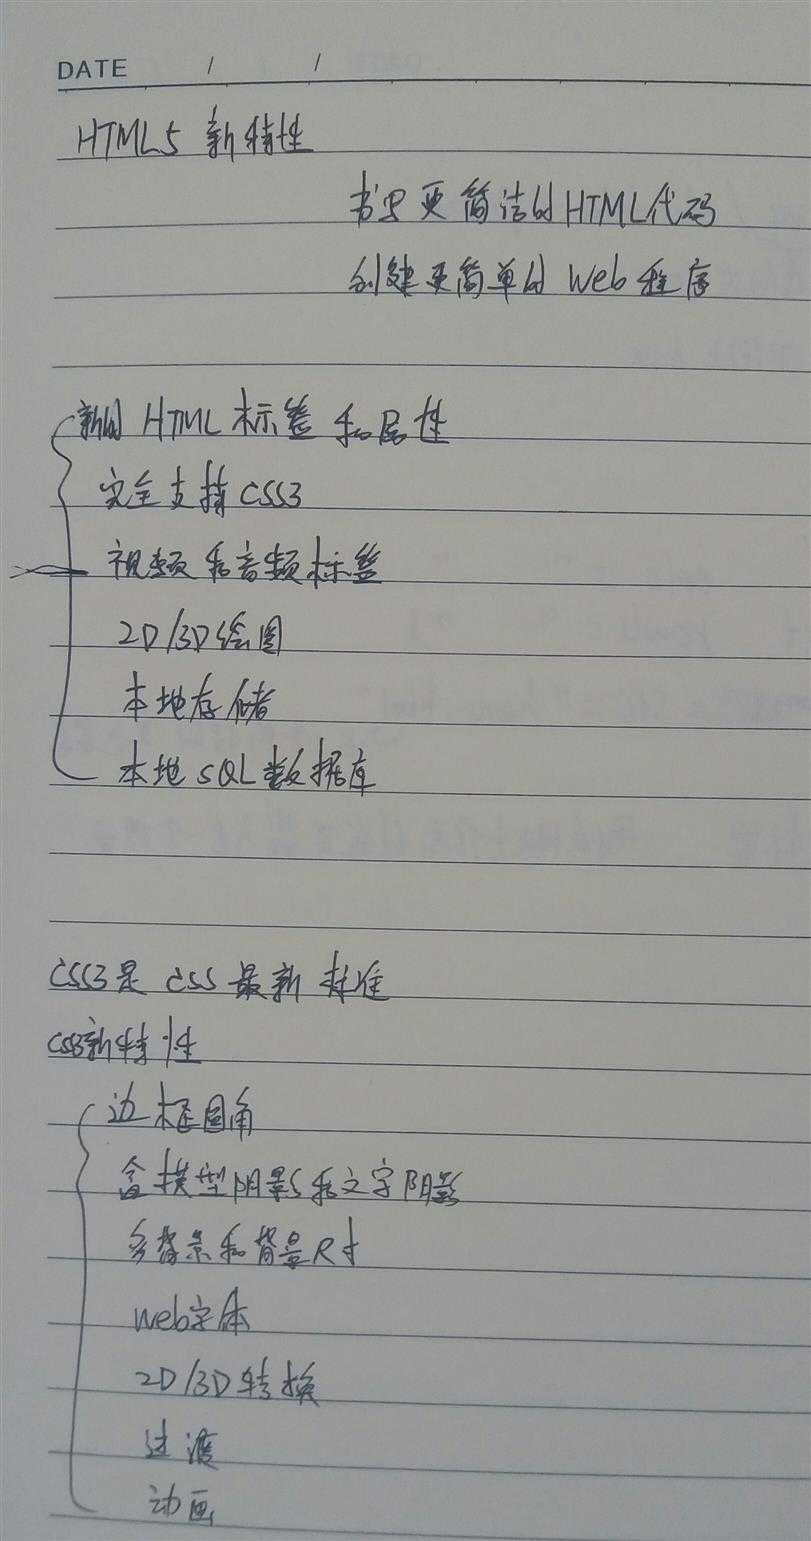 DATE / /
HTML5 新特性
书写更简洁的HTML代码
创建更简单的Web程序
新的 HTML 标签和属性
完全支持CSS3
视频和音频标签
2D/3D绘图
本地存储
本地SQL数据库
CSS3是CSS最新标准
CSS3新特性
边框圆角
盒模型阴影和文字阴影
多背景和背景尺寸
web字体
2D/3D转换
过渡
动画